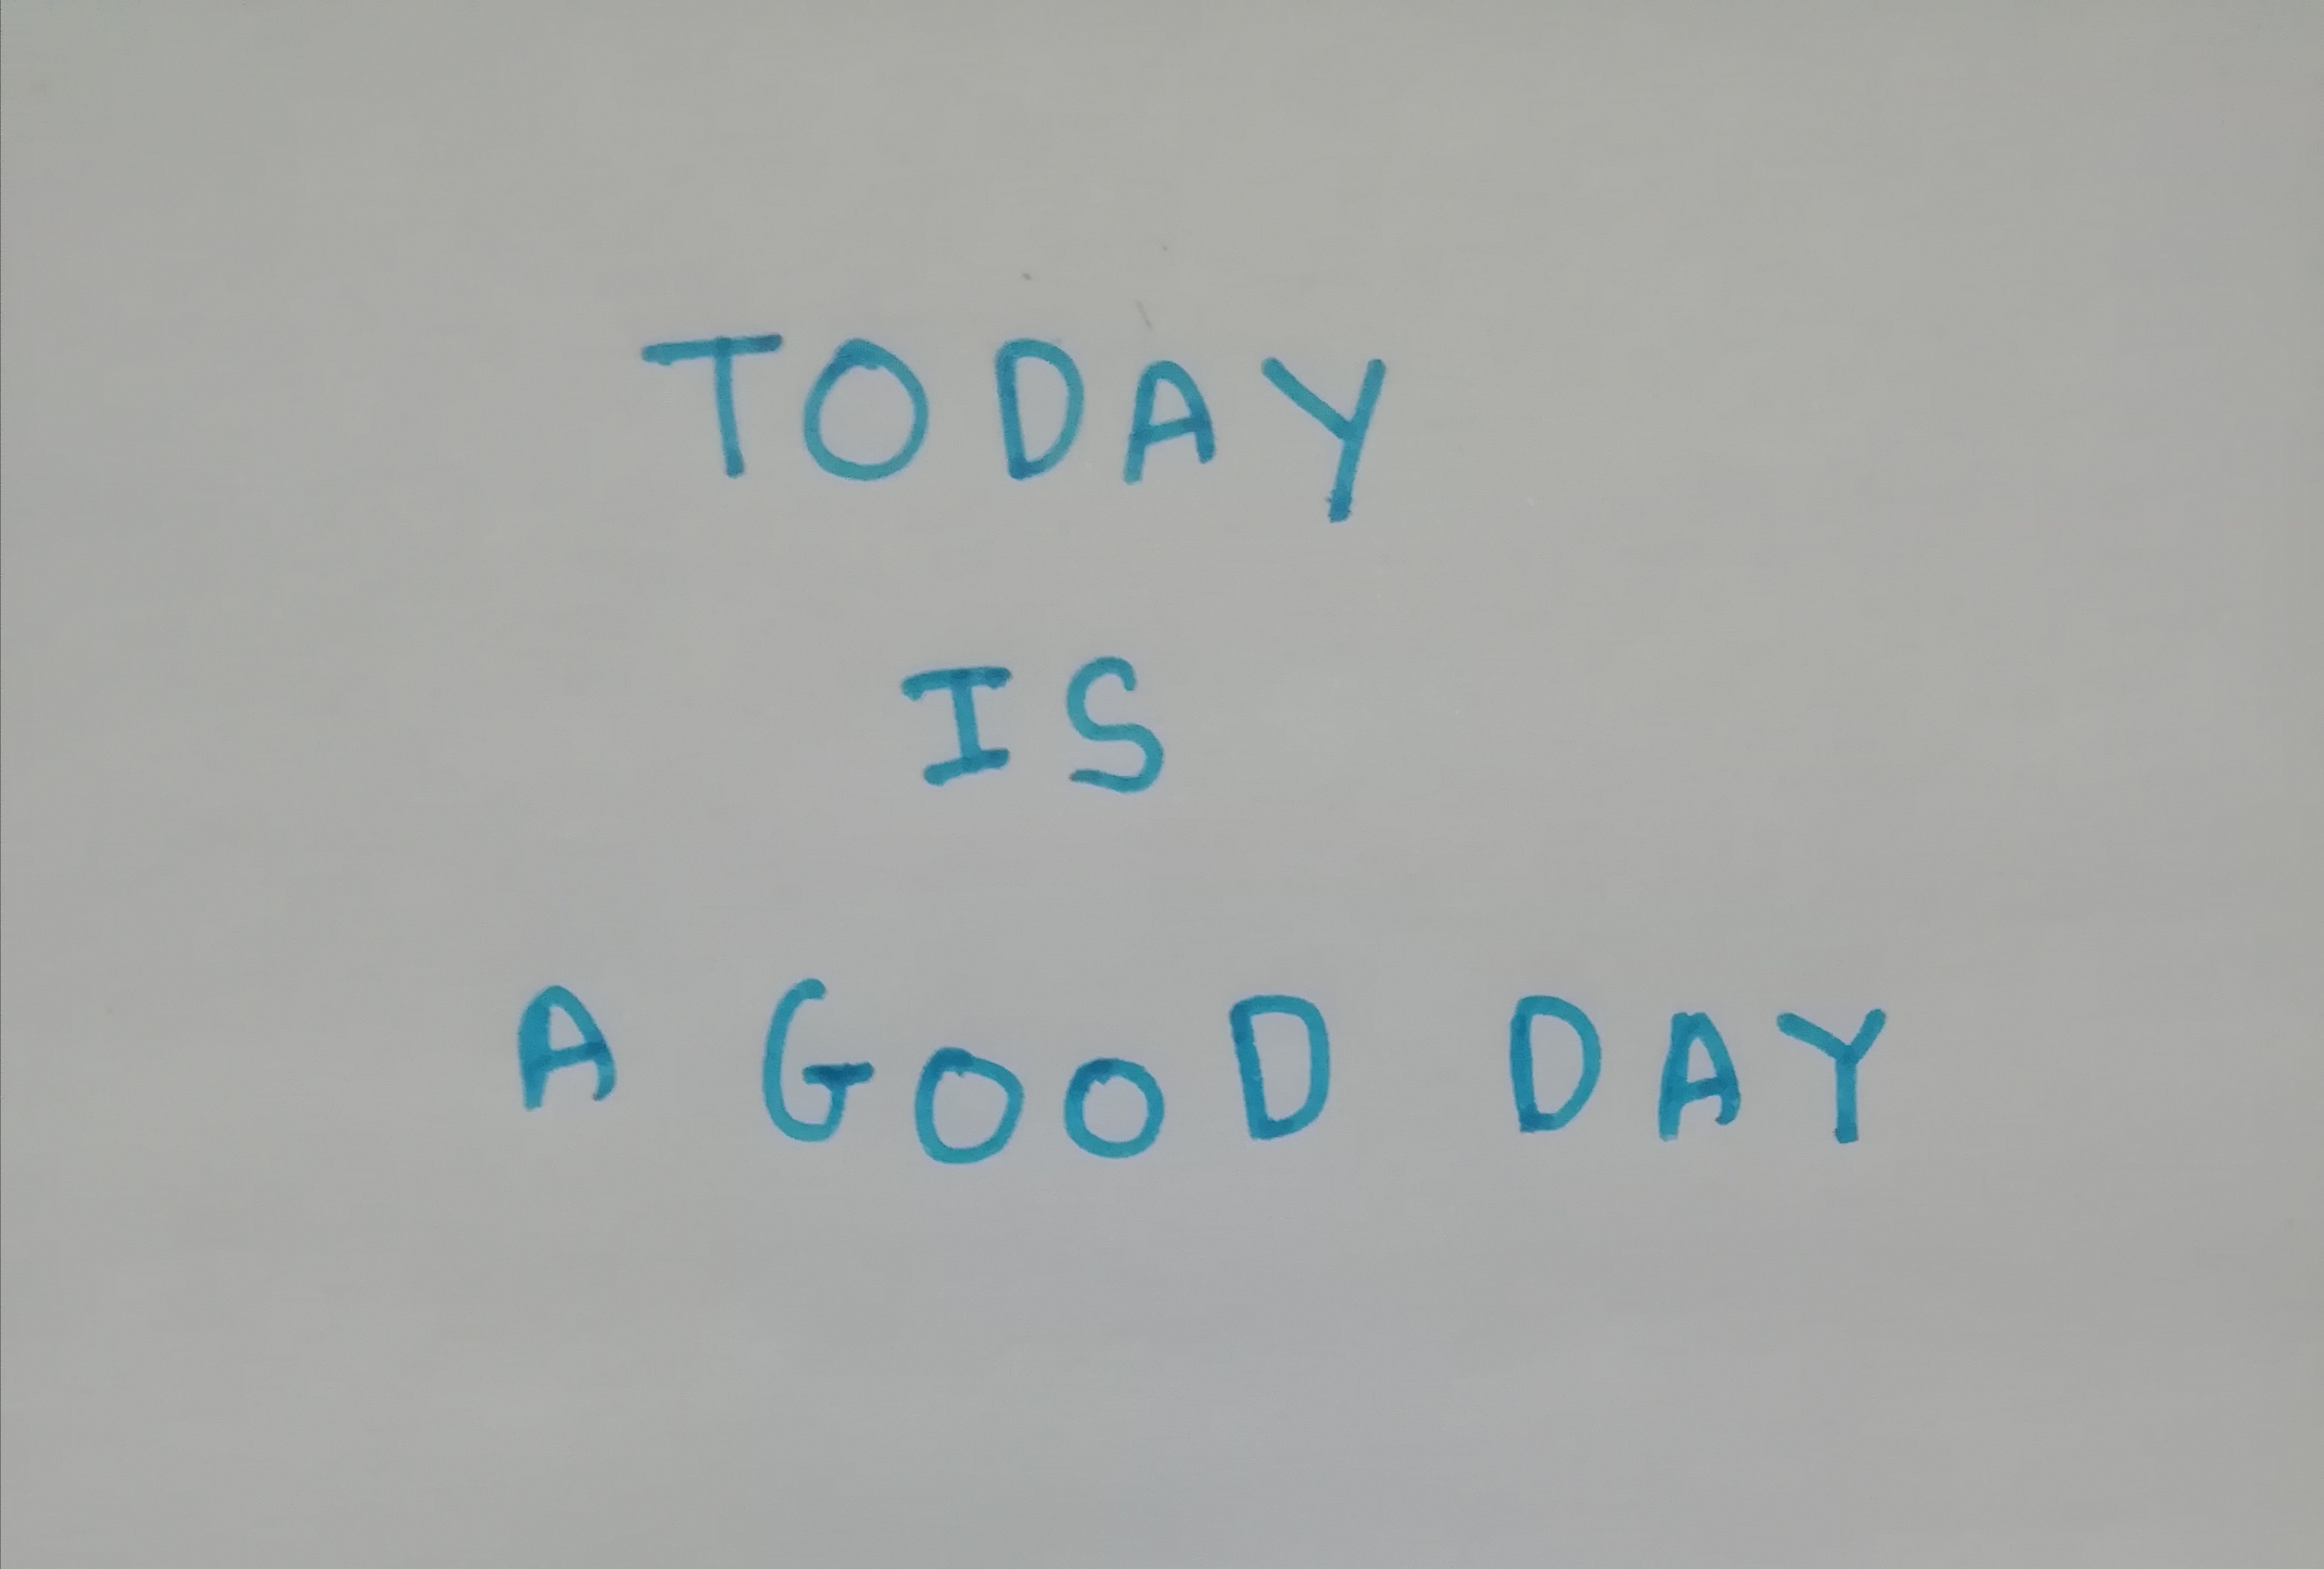 TODAY
IS
A GOOD DAY